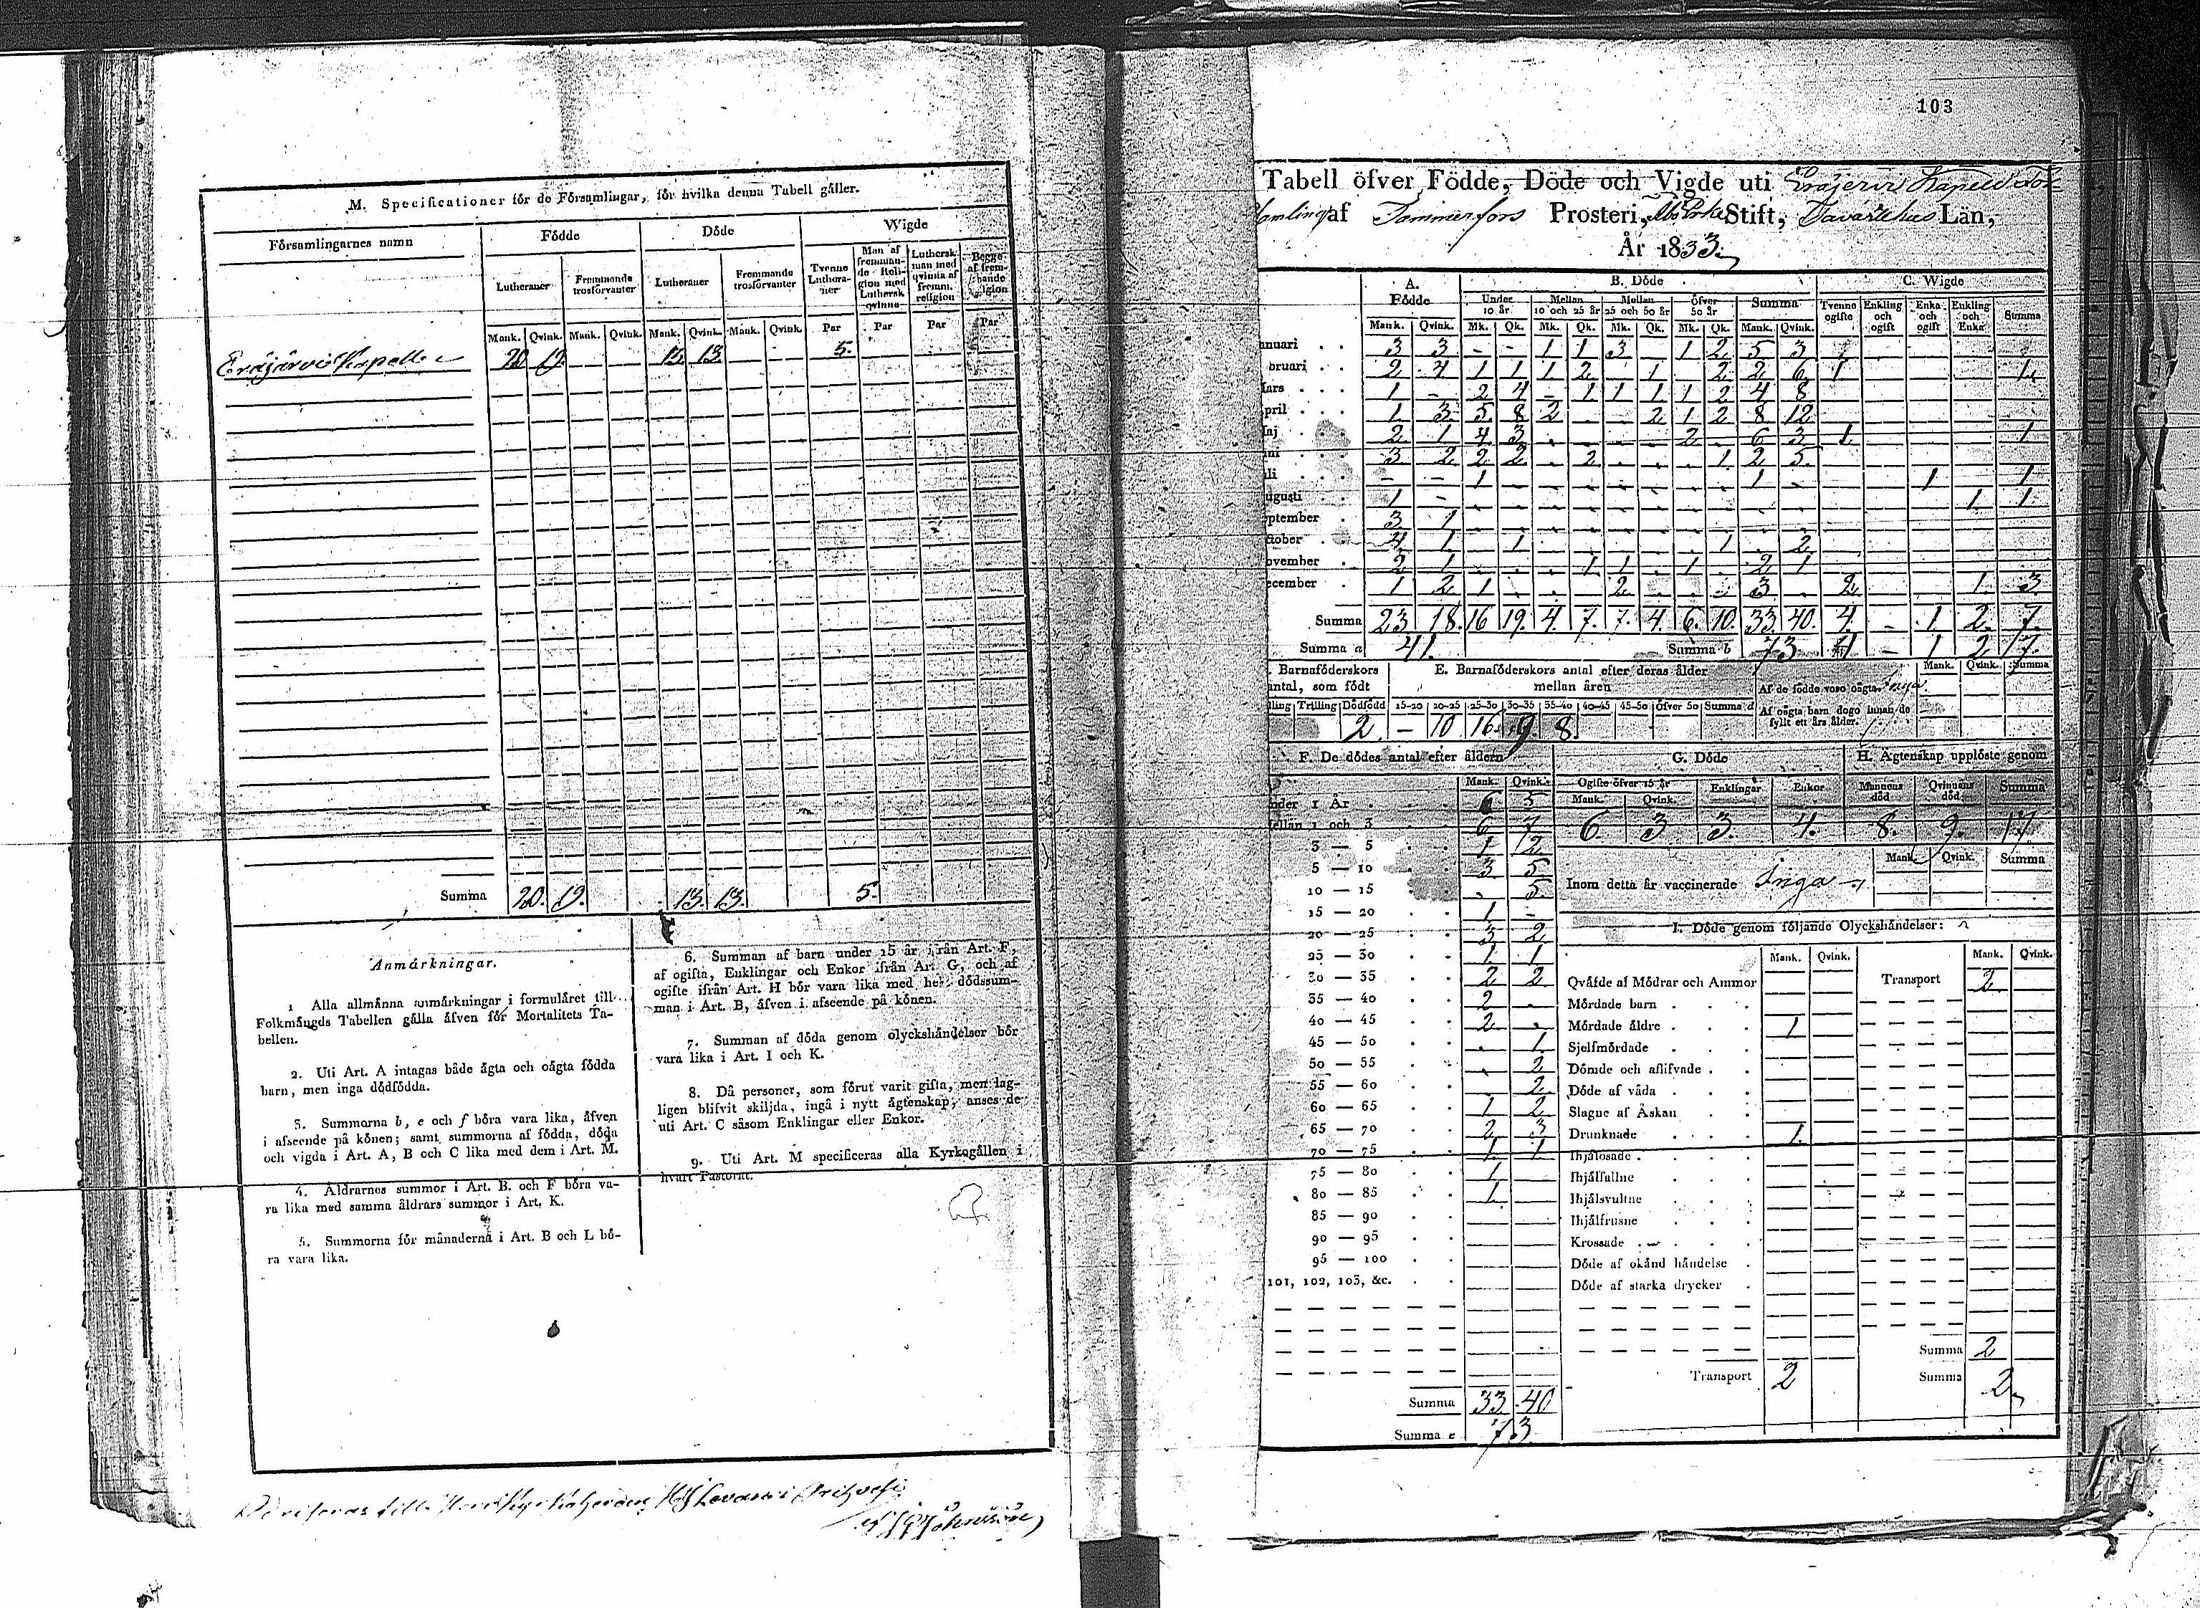 M. Specificationer för de Församlingar, för hvilka denna Tabell gäller.
Församlingarnes namn
Födde
Döde
Wigde
Lutheraner
Fremmande trosförvanter
Lutheraner
Fremmande trosförvanter
Tvenne Lutheraner
Man af fremmande Religion med Luthersk qvinna
Luthersk man med qvinna af fremm. religion
Begge af fremmande religion
Mank. Qvink. Mank. Qvink. Mank. Qvink. Mank. Qvink. Par Par Par Par
Eräjärvi Kapell 20 19. 13. 13. 5.
Summa 20. 19. 13. 13. 5.
Anmärkningar.
1 Alla allmänna anmärkningar i formuläret till
Folkmängds Tabellen gälla äfven för Mortalitets Ta-
bellen.
2. Uti Art. A intagas både ägta och oägta födda
barn, men inga dödfödda.
3. Summorna b, e och f böra vara lika, äfven
i afseende på könen; samt summorna af födda, döda
och vigda i Art. A, B och C lika med dem i Art. M.
4. Åldrarnes summor i Art. B. och F böra va-
ra lika med samma åldrars summor i Art. K.
5. Summorna för månaderna i Art. B och L bö-
ra vara lika.
6. Summan af barn under 15 år ifrån Art. F,
af ogifta, Enklingar och Enkor ifrån Art G, och af
ogifte ifrån Art. H bör vara lika med hela dödssum-
man i Art. B, äfven i afseende på könen.
7. Summan af döda genom olyckshändelser bör
vara lika i Art. I och K.
8. Då personer, som förut varit gifta, men lag-
ligen blifvit skiljda, ingå i nytt ägtenskap, anses de
uti Art. C såsom Enklingar eller Enkor.
9. Uti Art. M specificeras alla Kyrkogällen i
hvart Pastorat.
103
Tabell öfver Födde, Döde och Vigde uti Eräjervi Kapell För-
samling af Tammerfors Prosteri, Åbo Erke Stift, Tavastehus Län,
År 1833.
A. Födde
B. Döde
C. Wigde
Under 10 år
Mellan 10 och 25 år
Mellan 25 och 50 år
Öfver 50 år
Summa
Tvenne ogifte
Enkling och ogift
Enka och ogift
Enkling och Enka
Summa
Mank. Qvink. Mk. Qk. Mk. Qk. Mk. Qk. Mk. Qk. Mank. Qvink.
anuari 3 3 - - 1 1 3 1 2 5 3
bruari 2 4 1 1 1 2 1 2 2 6 1 1
ars 1 - 2 4 - 1 1 1 1 2 4 8
pril 1 3 5 8 2 2 1 2 8 12
aj 2 1 4 3 2 6 3 1 1
ni 3 2 2 2 2 1 2 5
li - - 1 1 - 1 1
ugusti 1 - 1 1
eptember 3 1
ktober 4 1 1 1 2
ovember 2 1 1 1 1 2 1
ecember 1 2 1 2 3 2 1 3
Summa 23 18. 16 19. 4. 7. 7. 4. 6. 10. 33 40. 4. - 1 2. 7
Summa a 41. Summa b 73 4 - 1 2 7.
Barnaföderskors
antal, som födt
E. Barnaföderskors antal efter deras ålder
mellan åren
Mank. Qvink. Summa
lling Trilling Dödfödd 15-20 20-25 25-30 30-35 35-40 40-45 45-50 Öfver 50 Summa d
2. - 10 16. 9. 8.
Af de födde voro oägta Inga
Af oägta barn dogo innan de
fyllt ett års ålder.
F. De dödes antal efter åldern
Mank. Qvink.
nder 1 År 6 5
ellan 1 och 3 6 7
3 — 5 1 2
5 — 10 3 5
10 — 15 - 5.
15 — 20 1 -
20 — 25 3 2
25 — 30 1 1
30 — 35 2 2
35 — 40 2 -
40 — 45 2 -
45 — 50 - 1
50 — 55 2
55 — 60 2
60 — 65 1 2
65 — 70 2 3
70 — 75 1 1
75 — 80 1
80 — 85 1
85 — 90
90 — 95
95 — 100
101, 102, 103, &c.
Summa 33 40
Summa e 73
G. Döde
Ogifte öfver 15 år
Mank. Qvink. Enklingar Enkor
6 3 3. 4.
H. Ägtenskap upplöste genom
Mannens död Qvinnans död Summa
8. 9. 17
Mank. Qvink. Summa
Inom detta år vaccinerade Inga
I. Döde genom följande Olyckshändelser:
Mank. Qvink. Mank. Qvink.
Qväfde af Mödrar och Ammor Transport 2
Mördade barn
Mördade äldre 1
Sjelfmördade
Dömde och aflifvade
Döde af våda
Slagne af Åskan
Drunknade 1
Ihjälosade
Ihjälfallne
Ihjälsvultne
Ihjälfrusne
Krossade
Döde af okänd händelse
Döde af starka drycker
Summa 2
Transport 2 Summa 2